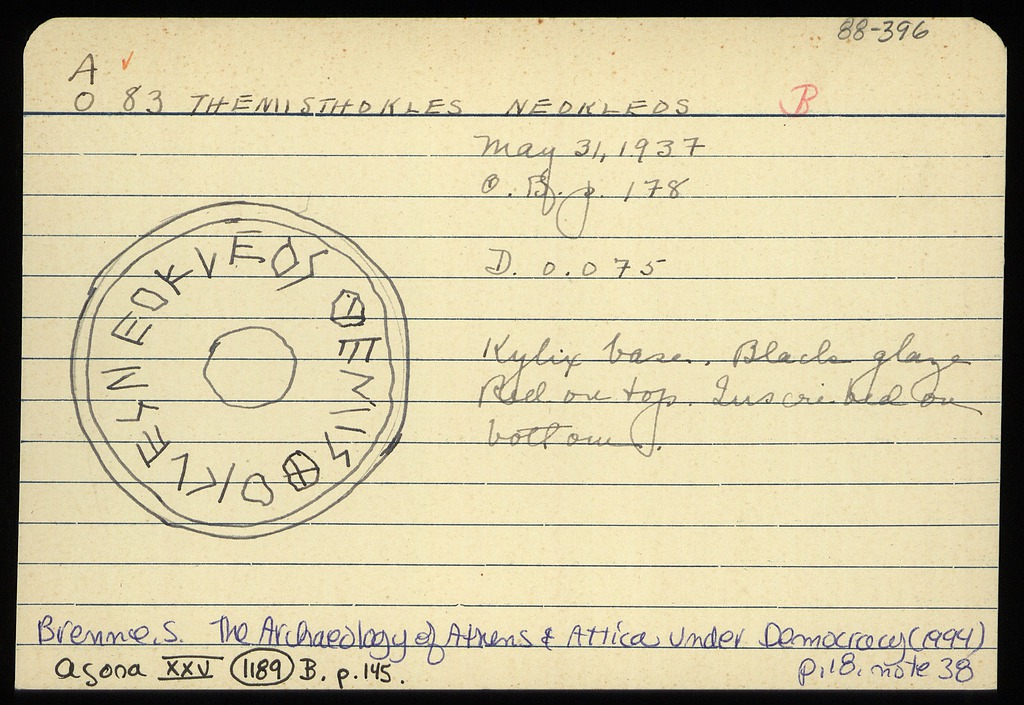 88-396
A ✓
O 83 THEMISTHOKLES NEOKLEOS B
May 31, 1937
O. B. p. 178
D. 0.075
ΘEMISΘOKLES NEOKVEOS
Kylix base. Black glaze
Red on top. Inscribed on
bottom.
Brenne, S. The Archaeology of Athens & Attica Under Democracy (1994)
p. 18, note 38
Agora XXV 1189 B. p. 145.